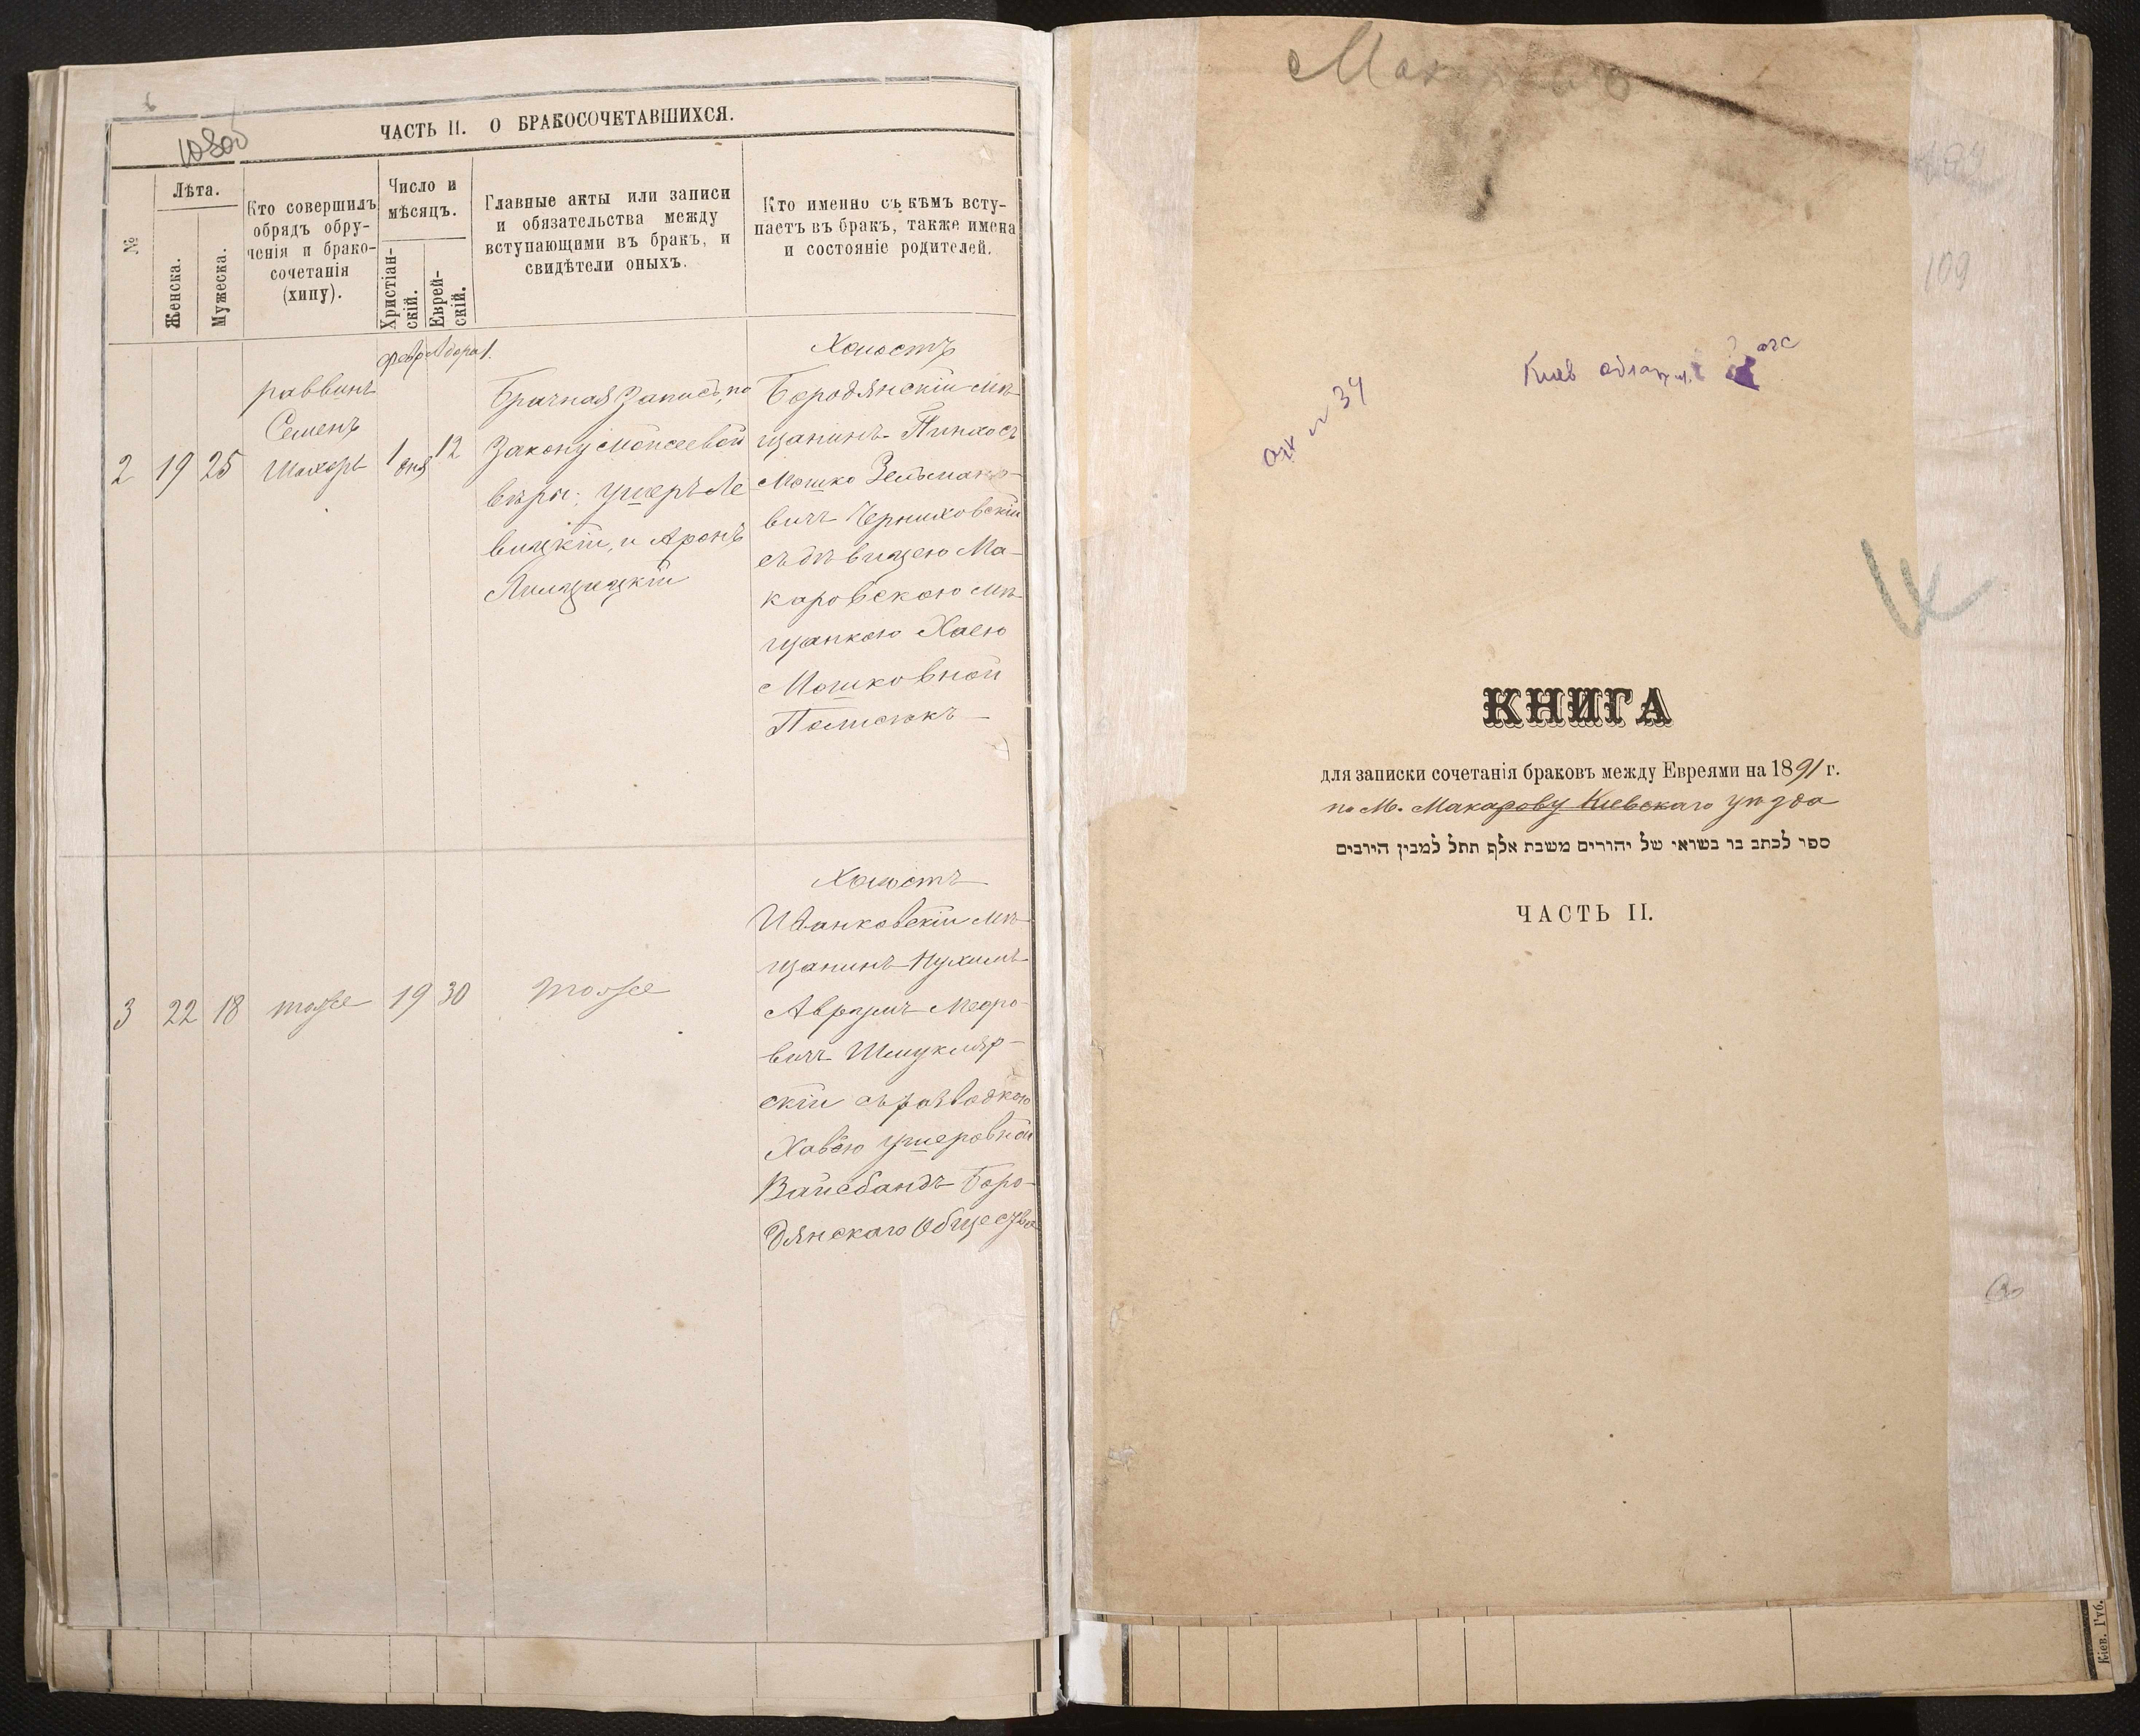 ЧАСТЬ II. О БРАКОСОЧЕТАВШИХСЯ.
№
Лѣта.
Женска.
Мужеска.
Кто совершилъ
обрядъ обру-
ченія и брако-
сочетанія
(хипу).
Число и
мѣсяцъ.
Христіан-
скій.
Еврей-
скій.
Главные акты или записи
и обязательства между
вступающими въ бракъ, и
свидѣтели оныхъ.
Кто именно съ кѣмъ всту-
паетъ въ бракъ, также имена
и состояніе родителей.
Февр Адора 1.
2
19
25
раввинъ
Семенъ
1 дня
12
Брачная Запись, по
Закону Моисеевой
вѣры: Ушеръ Ле
вицкій, и Аронъ
Холостъ
Бородянскій мѣ-
щанинъ Пинхосъ
Мошко Зельмано-
вичъ Черниховскій
съ дѣвицею Ма-
каровскою мѣ-
щанкою Хаею
Мошковной
Полисюкъ
3
22
18
тоже
19
30
тоже
Холостъ
Иванковскій мѣ-
щанинъ Нухимъ
Аврумъ Мееро-
вичъ Шмукляр-
скій съ разводкою
Хавою Ушеровной
Вайсбандъ Боро-
дянскаго Общества
Макаров
109
Киев
№ 34
КНИГА
для записки сочетанія браковъ между Евреями на 1891 г.
по М. Макарову Киевскаго уѣзда
ספר לכתב בו בשואי של יהודים משבת אלף תתל למבין היובים
ЧАСТЬ II.
Кіев. Губ.